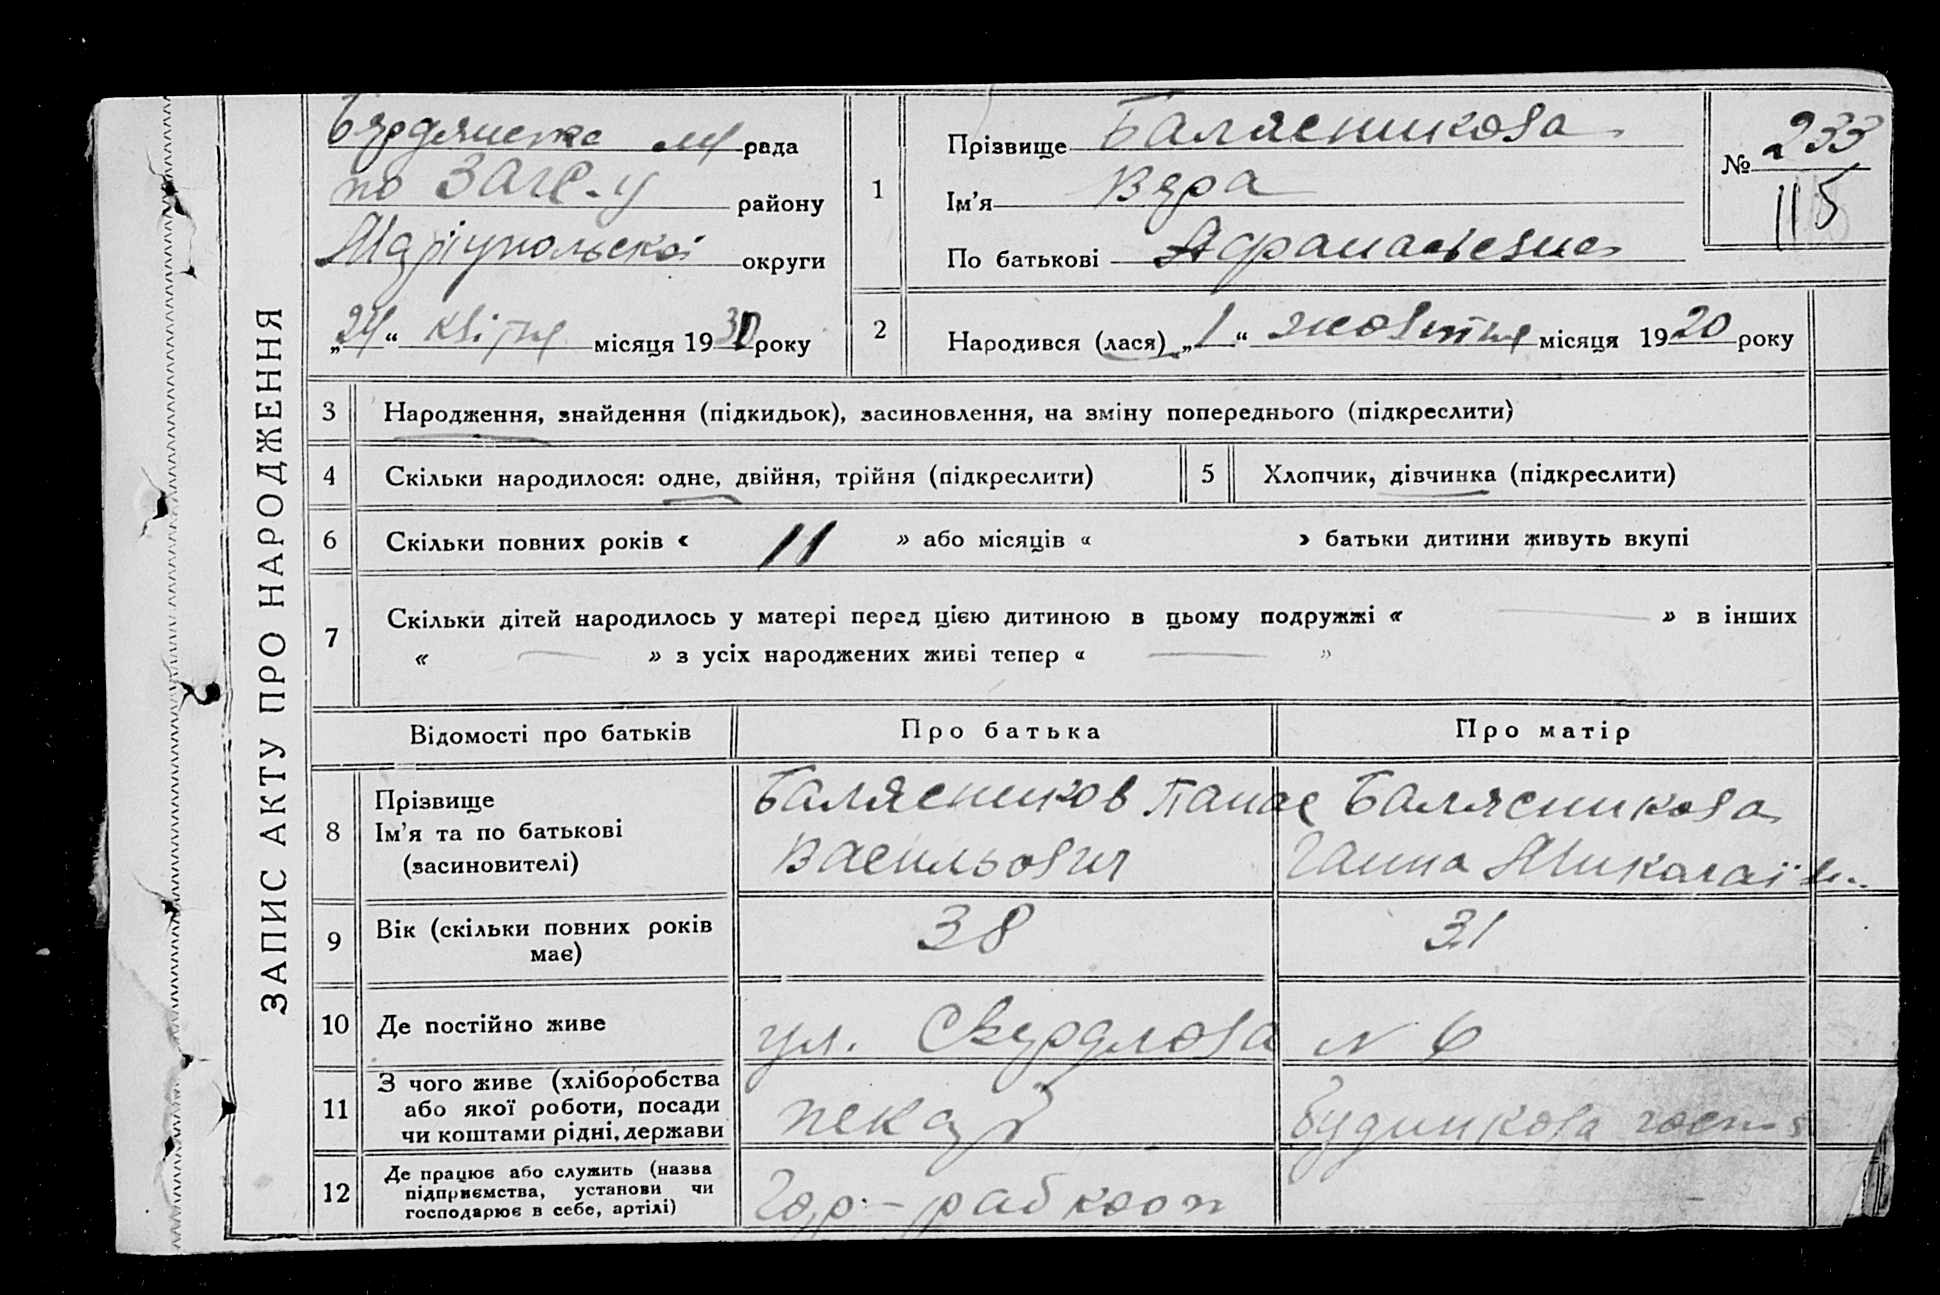 ЗАПИС АКТУ ПРО НАРОДЖЕННЯ
Бердянська рада
по ЗАГС-у району
Маріупольської округи
„24“ квітня місяця 1930 року
1
Прізвище Балясникова
Ім'я Вера
По батькові Афанасьевна
№ 233
115
2
Народився (лася) „1“ жовтня місяця 1920 року
3 Народження, знайдення (підкидьок), засиновлення, на зміну попереднього (підкреслити)
4 Скільки народилося: одне, двійня, трійня (підкреслити)
5 Хлопчик, дівчинка (підкреслити)
6 Скільки повних років « 11 » або місяців « » батьки дитини живуть вкупі
7 Скільки дітей народилось у матері перед цією дитиною в цьому подружжі « — » в інших
« — » з усіх народжених живі тепер « — »
Відомості про батьків Про батька Про матір
8
Прізвище
Ім'я та по батькові
(засиновителі)
Балясников Панас
Васильович
Балясникова
Ганна Миколаїв.
9 Вік (скільки повних років
має)
38
31
10 Де постійно живе ул. Свердлова N 6
11 З чого живе (хліборобства
або якої роботи, посади
чи коштами рідні, держави
пекар
будинкова
12 Де працює або служить (назва
підприємства, установи чи
господарює в себе, артілі)
Гор-рабкооп